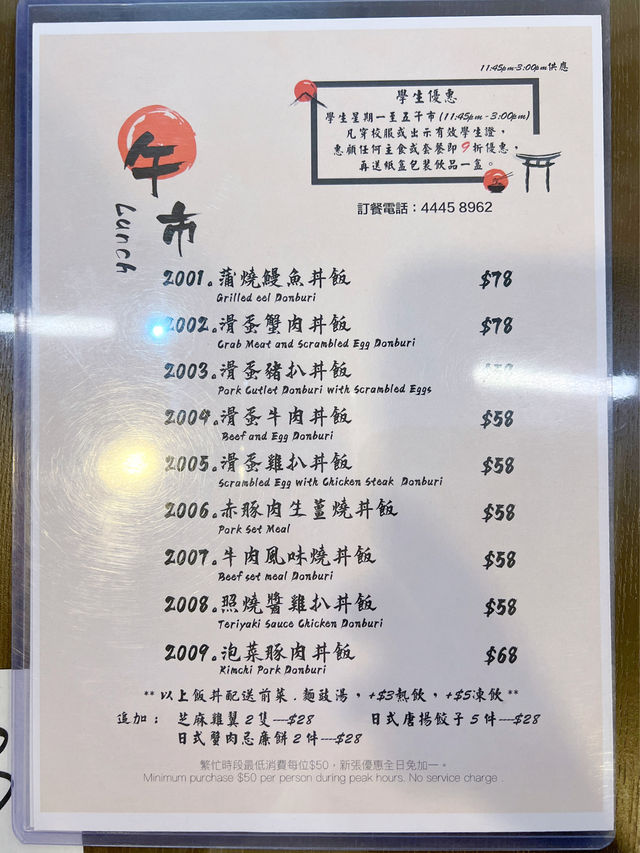 11:45pm-3:00pm供應
學生優惠
學生星期一至五午市(11:45pm-3:00pm)
凡穿校服或出示有效學生證,
惠顧任何主食或套餐即9折優惠,
再送紙盒包裝飲品一盒。
訂餐電話:4445 8962
午市
Lunch
2001.蒲燒鰻魚丼飯 $78
Grilled eel Donburi
2002.滑蛋蟹肉丼飯 $78
Crab Meat and Scrambled Egg Donburi
2003.滑蛋豬扒丼飯
Pork Cutlet Donburi with Scrambled Eggs
2004.滑蛋牛肉丼飯 $58
Beef and Egg Donburi
2005.滑蛋雞扒丼飯 $58
Scrambled Egg with Chicken Steak Donburi
2006.赤豚肉生薑燒丼飯 $58
Pork Set Meal
2007.牛肉風味燒丼飯 $58
Beef set meal Donburi
2008.照燒醬雞扒丼飯 $58
Teriyaki Sauce Chicken Donburi
2009.泡菜豚肉丼飯 $68
Kimchi Pork Donburi
**以上飯丼配送前菜.麵豉湯,+$3熱飲,+$5凍飲**
追加: 芝麻雞翼2隻---$28 日式唐揚餃子5件---$28
日式蟹肉忌廉餅2件---$28
繁忙時段最低消費每位$50,新張優惠全日免加一。
Minimum purchase $50 per person during peak hours. No service charge .